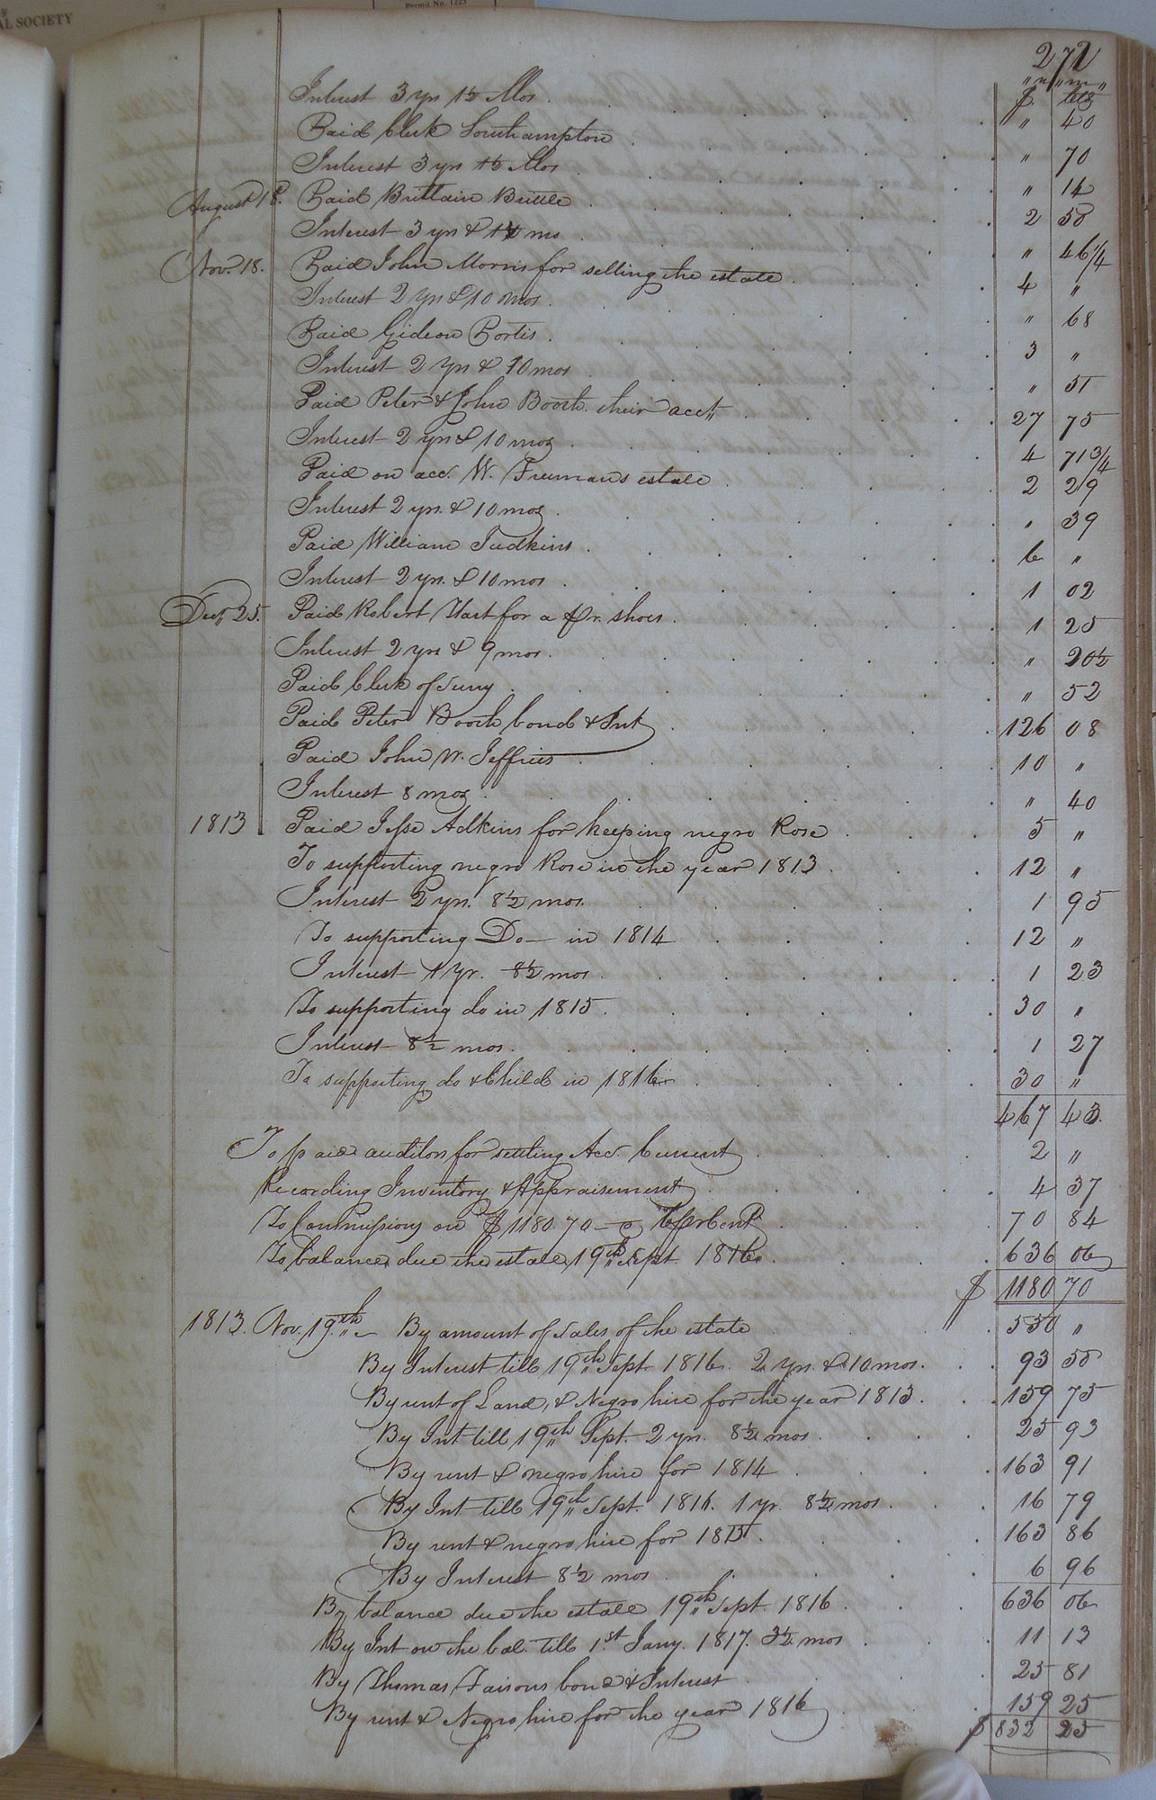 AL SOCIETY
Permit No. 1225
272
$ cts
Interest 3 yrs 1½ Mos. " 40
Paid Clerk Southampton " 70
Interest 3 yrs 1½ Mos " 14
August 18. Paid Brittain Britle 2 58
Interest 3 yrs & 1½ mo " 46¼
Nov. 18. Paid John Morris for selling the estate 4 "
Interest 2 yrs & 10 mos. " 68
Paid Gideon Portis. 3 "
Interest 2 yrs & 10 mos " 51
Paid Peter & John Booth their acct 27 75
Interest 2 yrs & 10 mos 4 71 3/4
Paid on acc. W. Freemans estate 2 29
Interest 2 yrs. & 10 mos " 39
Paid William Judkins. 6 "
Interest 2 yrs. & 10 mos 1 02
Dec 25. Paid Robert Hart for a pr. shoes 1 25
Interest 2 yrs & 9 mos. " 20½
Paid Clerk of Surry " 52
Paid Peter Booth bond & Int 126 08
Paid John W. Jeffries 10 "
Interest 8 mos " 40
1813 Paid Jesse Adkins for keeping negro Rose 5 "
To supporting negro Rose in the year 1813 12 "
Interest 2 yrs. 8½ mos. 1 95
To supporting Do in 1814 12 "
Interest 1 yr. 8½ mos 1 23
To supporting do in 1815. 30 "
Interest 8½ mos. 1 27
To supporting do & Child in 1816 30 "
467 43
To paid auditors for settling Acc. Current 2 "
Recording Inventory & Appraisement 4 37
To Commissions on $1180.70 @ 6 pr Cent 70 84
To balance due the estate 19th Sept. 1816. 636 06
$ 1180 70
1813. Nov. 19th By amount of Sales of the estate 550 "
By Interest till 19th Sept. 1816. 2 yrs. & 10 mos. 93 50
By rent of Land, & Negro hire for the year 1813. 159 75
By Int till 19th Sept. 2 yrs. 8½ mos 25 93
By rent & negro hire for 1814 163 91
By Int till 19th Sept. 1816. 1 yr. 8½ mos. 16 79
By rent & negro hire for 1815. 163 86
By Interest 8½ mos 6 96
By balance due the estate 19th Sept. 1816 636 06
By Int on the bal. till 1st Jany. 1817. 3½ mos 11 13
By Thomas Faisons bond & Interest 25 81
By rent & Negro hire for the year 1816 159 25
$ 832 25